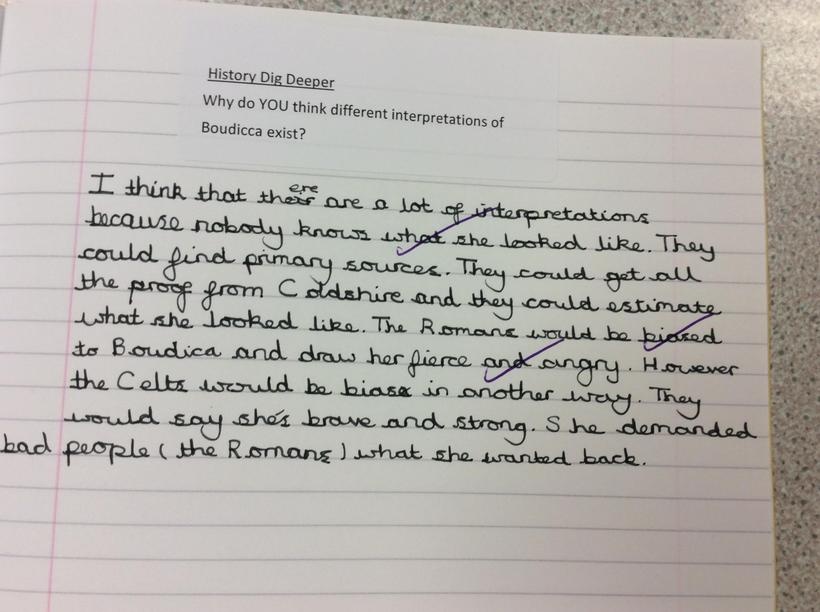 History Dig Deeper
Why do YOU think different interpretations of
Boudicca exist?
I think that there are a lot of interpretations
because nobody knows what she looked like. They
could find primary sources. They could get all
the proof from Coldshire and they could estimate
what she looked like. The Romans would be biased
to Boudica and draw her fierce and angry. However
the Celts would be bias in another way. They
would say she's brave and strong. She demanded
bad people (the Romans) what she wanted back.